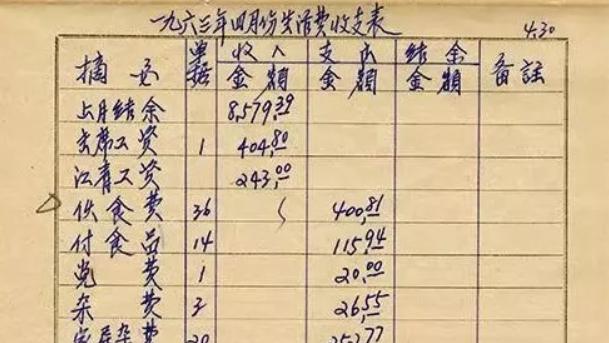 一九六三年四月份生活费收支表 4.30
摘要 单据 收入金額 支出金額 结余金額 备註
上月结余 8,579.39
主席工资 1 404.80
江青工资 243.00
伙食费 36 400.81
付食品 14 115.94
党费 1 20.00
杂费 3 26.55
家居杂费 20